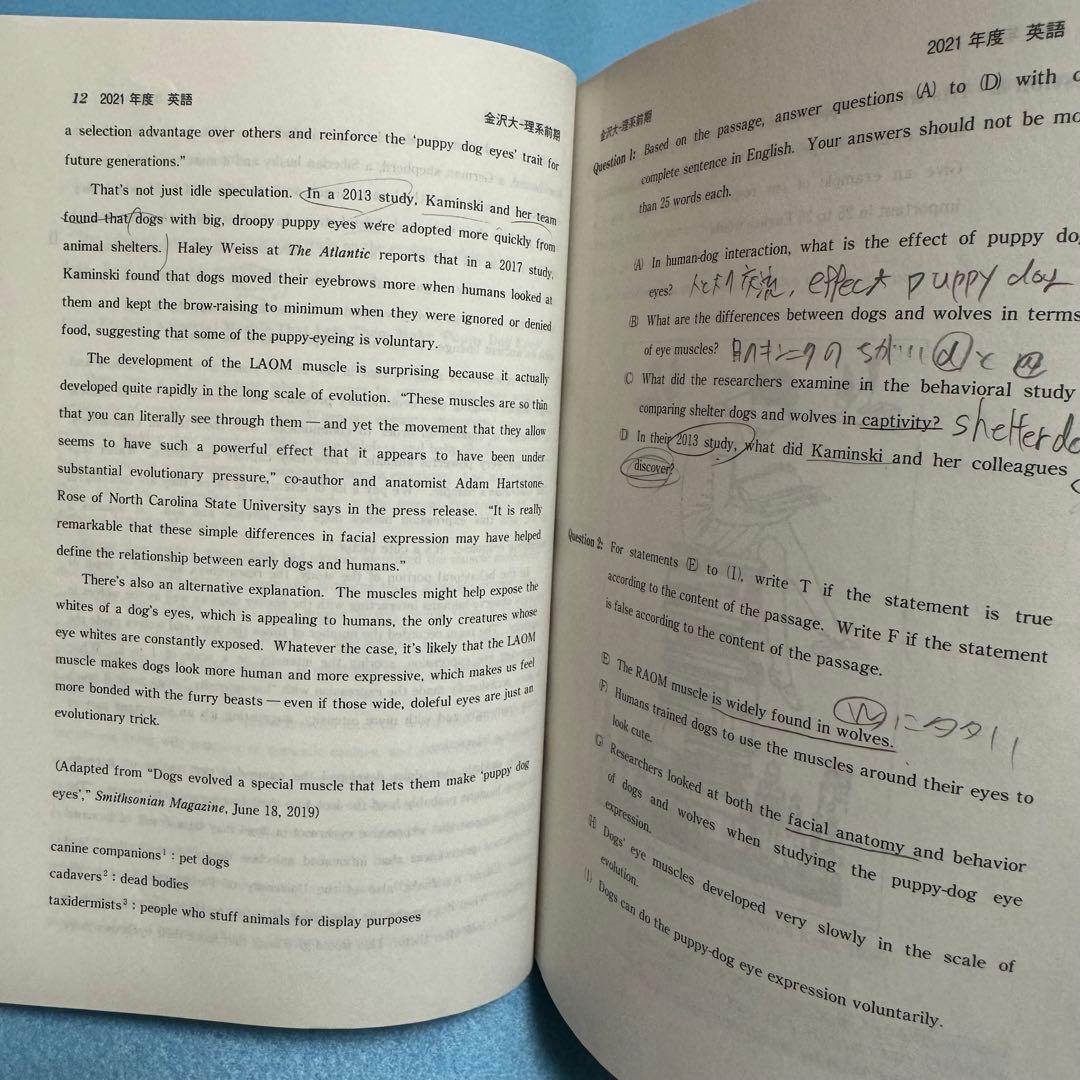 12 2021年度 英語
金沢大-理系前期
a selection advantage over others and reinforce the 'puppy dog eyes' trait for
future generations."
That's not just idle speculation. In a 2013 study, Kaminski and her team
found that dogs with big, droopy puppy eyes were adopted more quickly from
animal shelters. Haley Weiss at The Atlantic reports that in a 2017 study,
Kaminski found that dogs moved their eyebrows more when humans looked at
them and kept the brow-raising to minimum when they were ignored or denied
food, suggesting that some of the puppy-eyeing is voluntary.
The development of the LAOM muscle is surprising because it actually
developed quite rapidly in the long scale of evolution. "These muscles are so thin
that you can literally see through them — and yet the movement that they allow
seems to have such a powerful effect that it appears to have been under
substantial evolutionary pressure," co-author and anatomist Adam Hartstone-
Rose of North Carolina State University says in the press release. "It is really
remarkable that these simple differences in facial expression may have helped
define the relationship between early dogs and humans."
There's also an alternative explanation. The muscles might help expose the
whites of a dog's eyes, which is appealing to humans, the only creatures whose
eye whites are constantly exposed. Whatever the case, it's likely that the LAOM
muscle makes dogs look more human and more expressive, which makes us feel
more bonded with the furry beasts — even if those wide, doleful eyes are just an
evolutionary trick.
(Adapted from "Dogs evolved a special muscle that lets them make 'puppy dog
eyes'," Smithsonian Magazine, June 18, 2019)
canine companions¹ : pet dogs
cadavers² : dead bodies
taxidermists³ : people who stuff animals for display purposes
2021年度 英語
金沢大-理系前期
Question 1: Based on the passage, answer questions (A) to (D) with
complete sentence in English. Your answers should not be
than 25 words each.
(A) In human-dog interaction, what is the effect of puppy
eyes? effect puppy dog
(B) What are the differences between dogs and wolves in terms
of eye muscles?
(C) What did the researchers examine in the behavioral study
comparing shelter dogs and wolves in captivity? shelter
(D) In their 2013 study, what did Kaminski and her colleagues
discover?
Question 2: For statements (E) to (I), write T if the statement is true
according to the content of the passage. Write F if the statement
is false according to the content of the passage.
(E) The RAOM muscle is widely found in wolves.
(F) Humans trained dogs to use the muscles around their eyes to
look cute.
(G) Researchers looked at both the facial anatomy and behavior
of dogs and wolves when studying the puppy-dog eye
expression.
(H) Dogs' eye muscles developed very slowly in the scale of
evolution.
(I) Dogs can do the puppy-dog eye expression voluntarily.